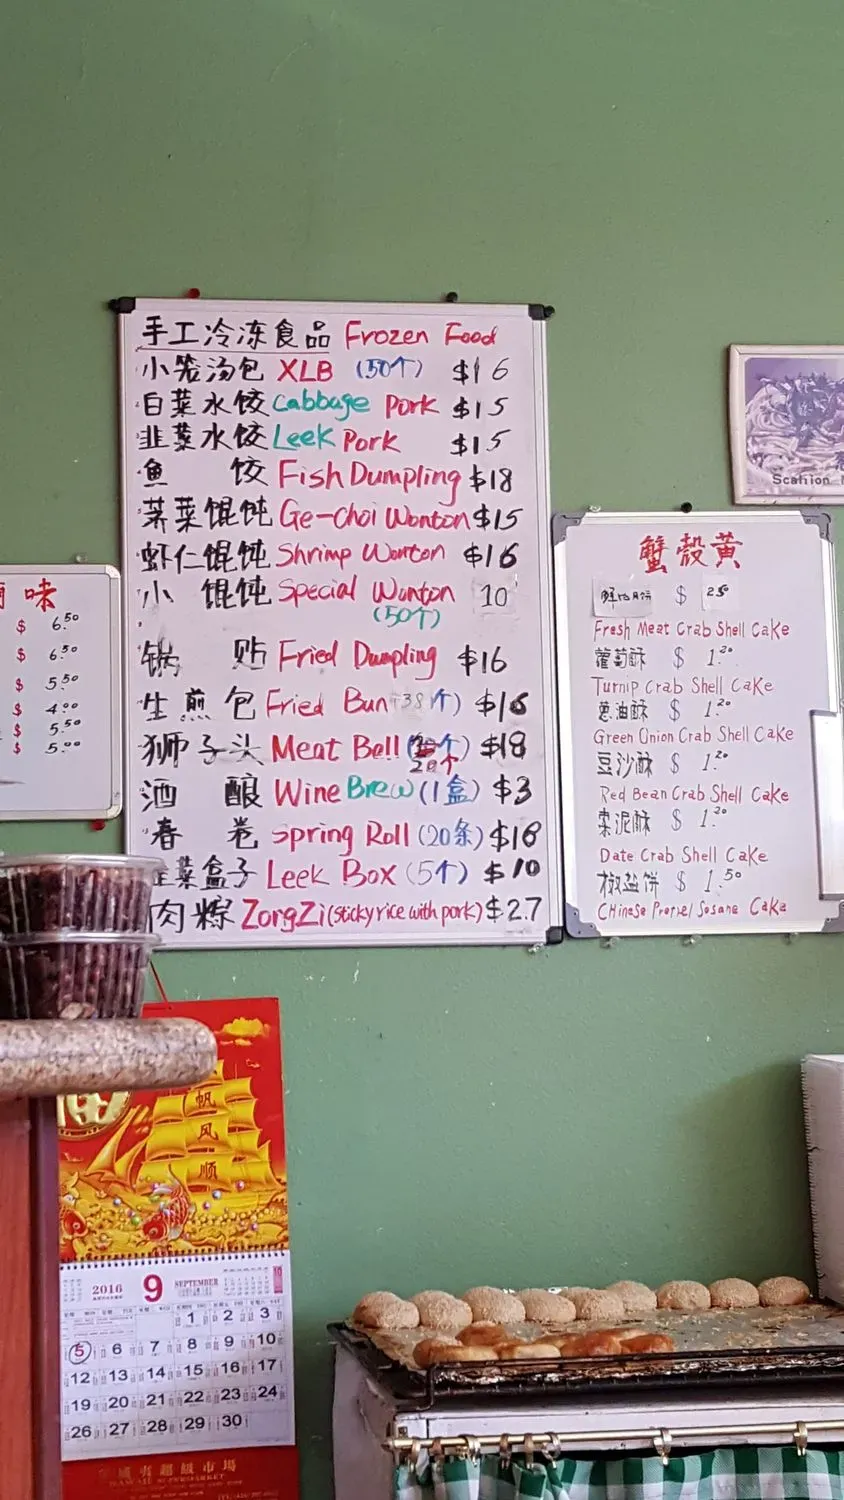 手工冷冻食品 Frozen Food
小笼汤包 XLB (50个) $16
白菜水饺 Cabbage Pork $15
韭菜水饺 Leek Pork $15
鱼饺 Fish Dumpling $18
荠菜馄饨 Ge-choi Wonton $15
虾仁馄饨 Shrimp Wonton $16
小馄饨 Special Wonton 10
(50个)
锅贴 Fried Dumpling $16
生煎包 Fried Bun (38个) $16
狮子头 Meat Ball $18
20个
酒酿 Wine Brew (1盒) $3
春卷 Spring Roll (20条) $16
韭菜盒子 Leek Box (5个) $10
肉粽 ZorgZi (sticky rice with pork) $2.7
味
$ 6.50
$ 6.50
$ 5.50
$ 4.00
$ 5.50
$ 5.00
蟹殼黄
鲜肉月饼 $ 2.50
Fresh Meat Crab Shell Cake
蘿蔔酥 $ 1.20
Turnip Crab Shell Cake
蔥油酥 $ 1.20
Green Onion Crab Shell Cake
豆沙酥 $ 1.20
Red Bean Crab Shell Cake
枣泥酥 $ 1.20
Date Crab Shell Cake
椒盐饼 $ 1.50
Chinese Pretzel Sesame Cake
Scallion
一帆风顺
2016 9 SEPTEMBER
1 2 3
5 6 7 8 9 10
12 13 14 15 16 17
19 20 21 22 23 24
26 27 28 29 30
超級市場
SUPERMARKET